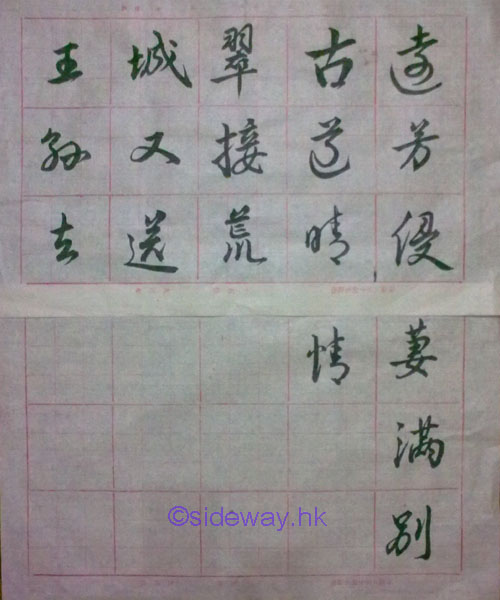 遠芳侵
古道晴
翠接荒
城又送
王孫去
萋滿別
情
©sideway.hk